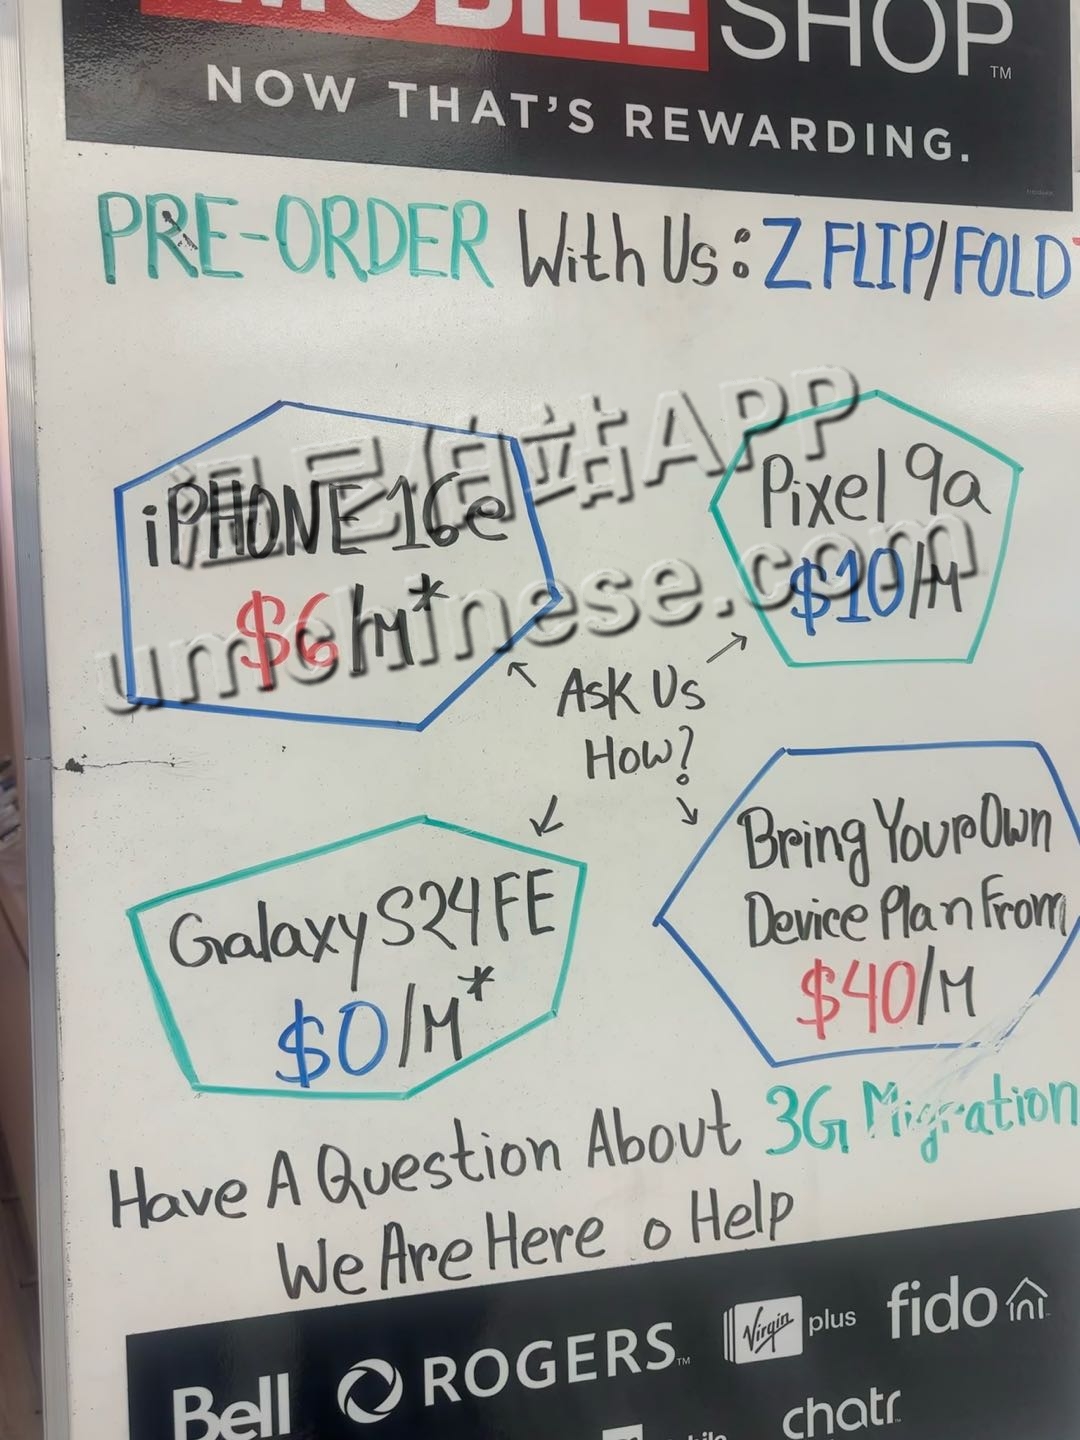 MOBILE SHOP™
NOW THAT'S REWARDING.
PRE-ORDER With Us: Z FLIP/FOLD
iPHONE 16e
$6/M*
Pixel 9a
$10/M
Ask Us
How?
Galaxy S24 FE
$0/M*
Bring Your Own
Device Plan From
$40/M
Have A Question About 3G Migration
We Are Here o Help
Bell
ROGERS™
Virgin plus
fido
chatr
APP
umchinese.com